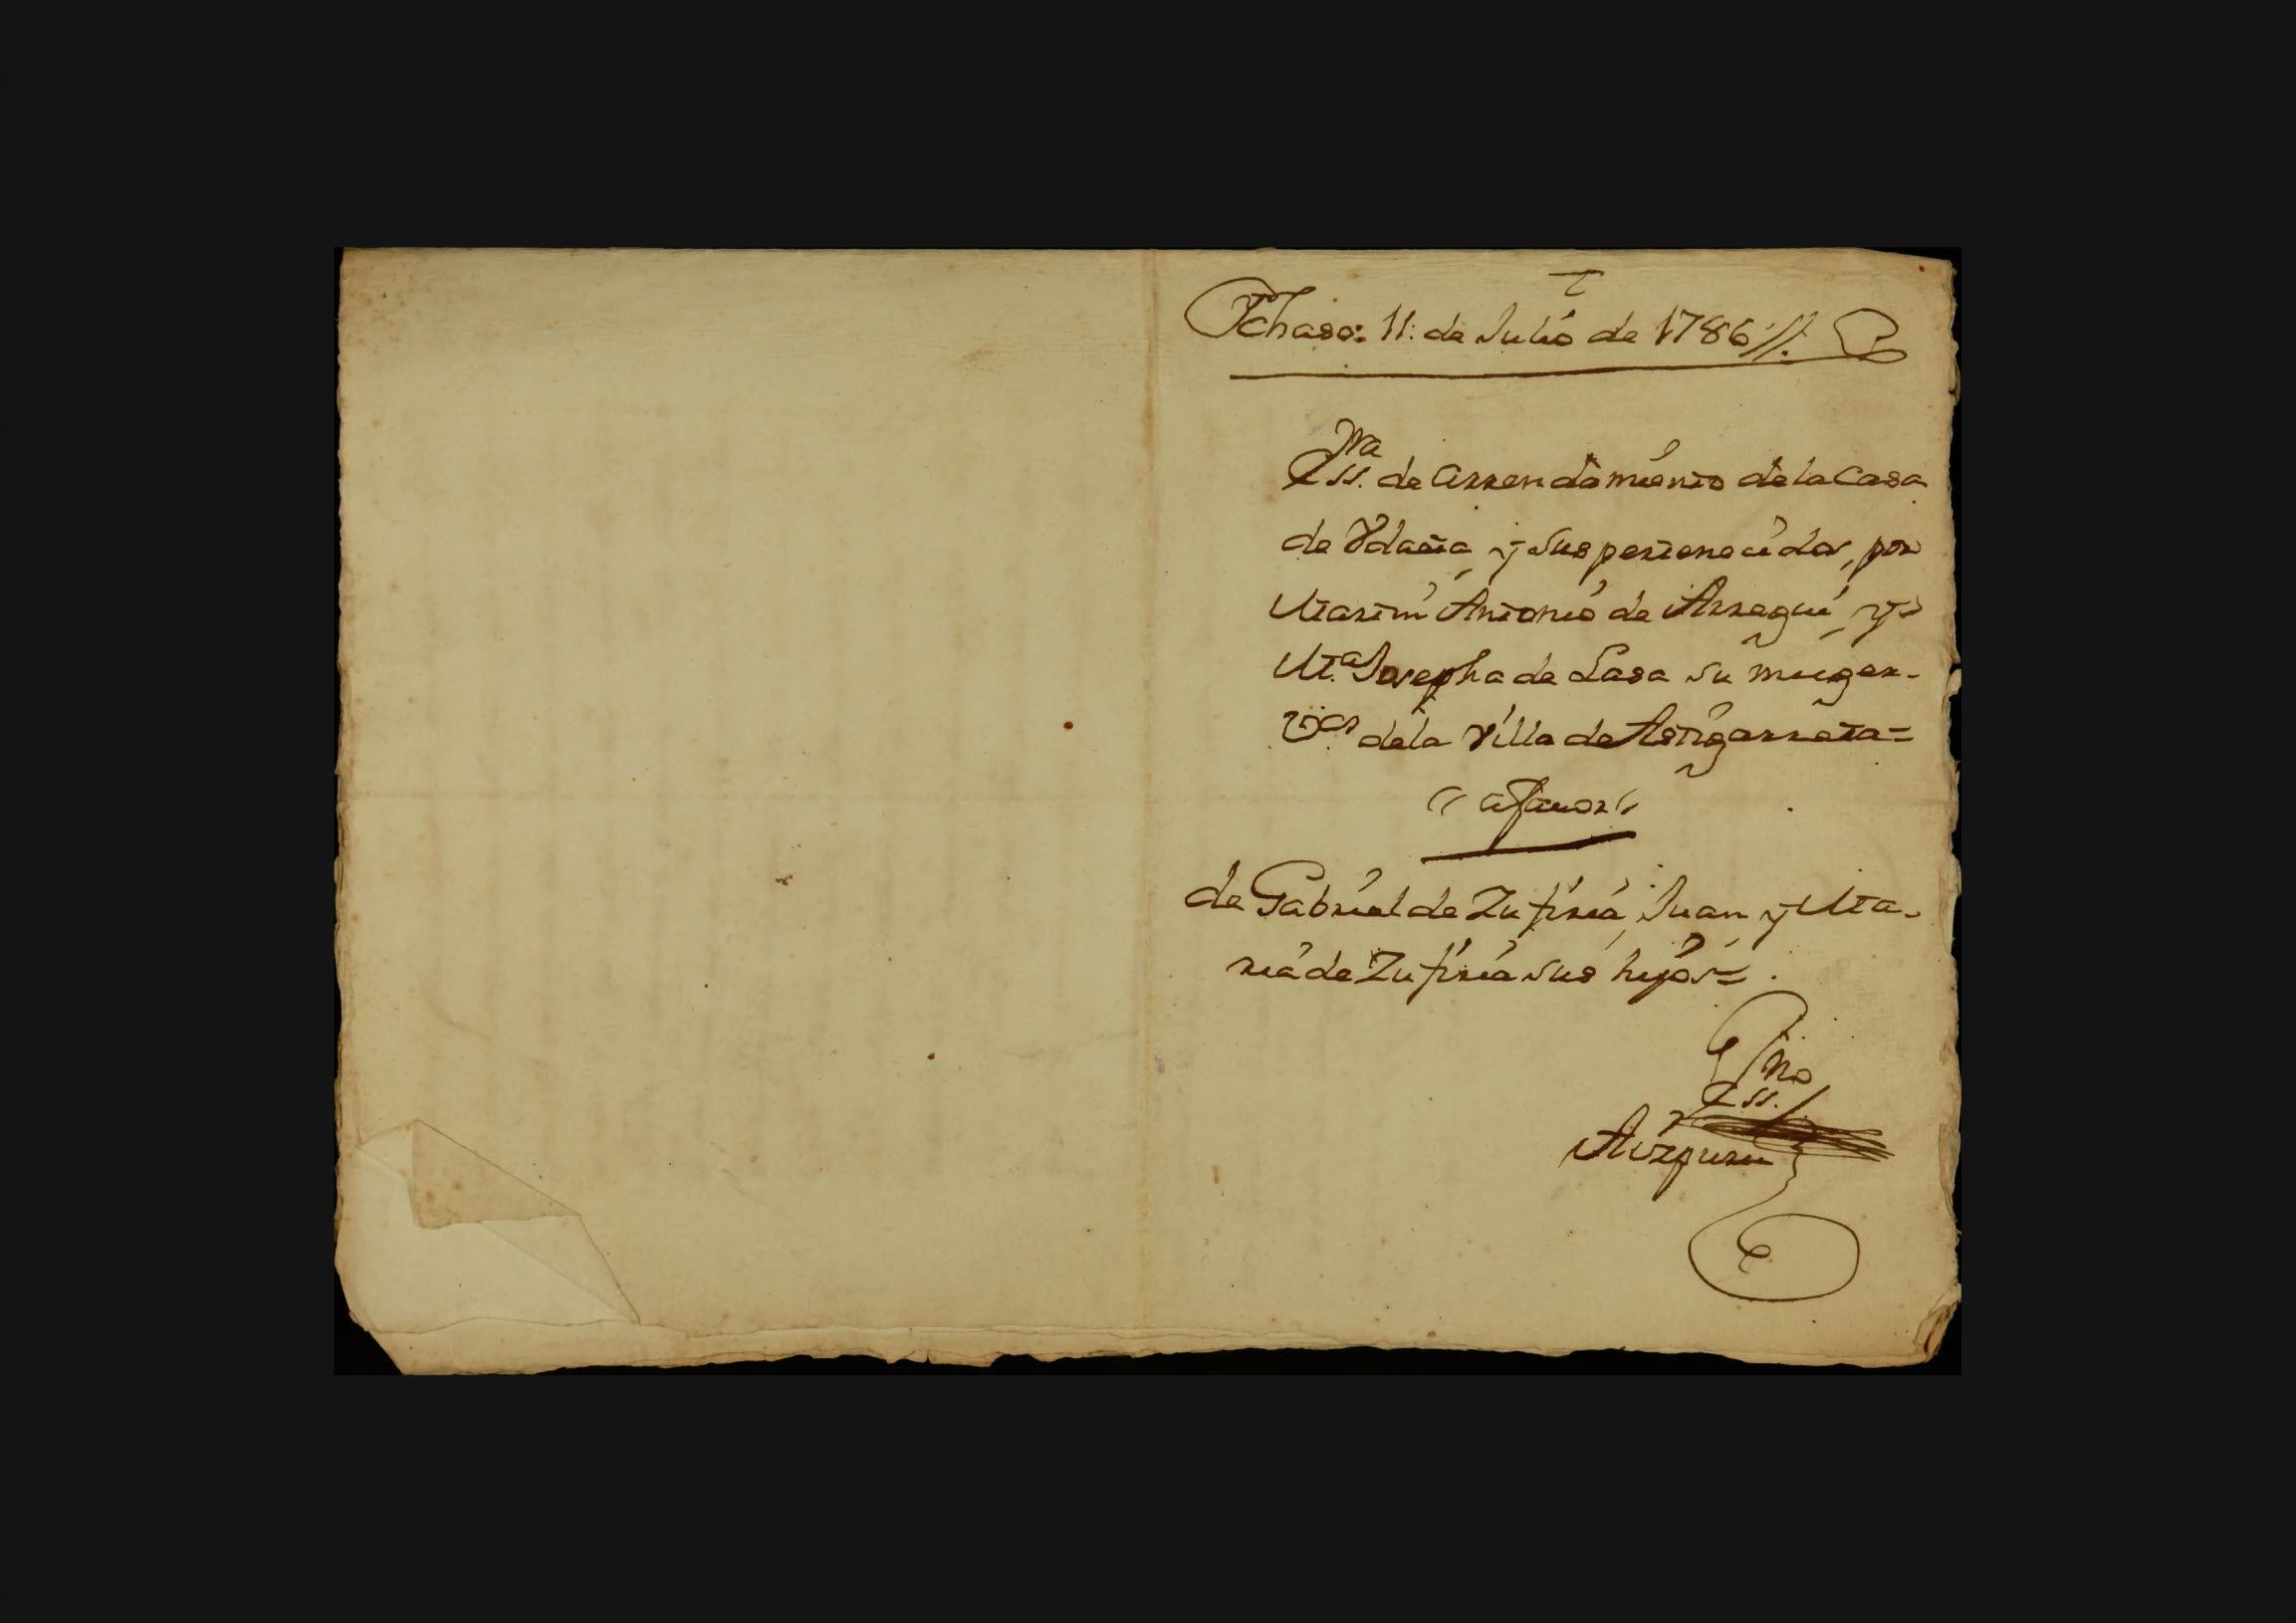 Ychaso: 11: de Julio de 1786 //.
Ess.ra de Arrendamiento de la Casa
de Ydiaña y sus pertenecidos, por
Martin Antonio de Arregui, y
M.a Josepha de Lasa su muger
V.os de la Villa de Astigarreta=
// a favor //
de Gabriel de Zufiria, Juan y Ma-
ria de Zufiria sus hijos=
Ess.no
Aizpuru